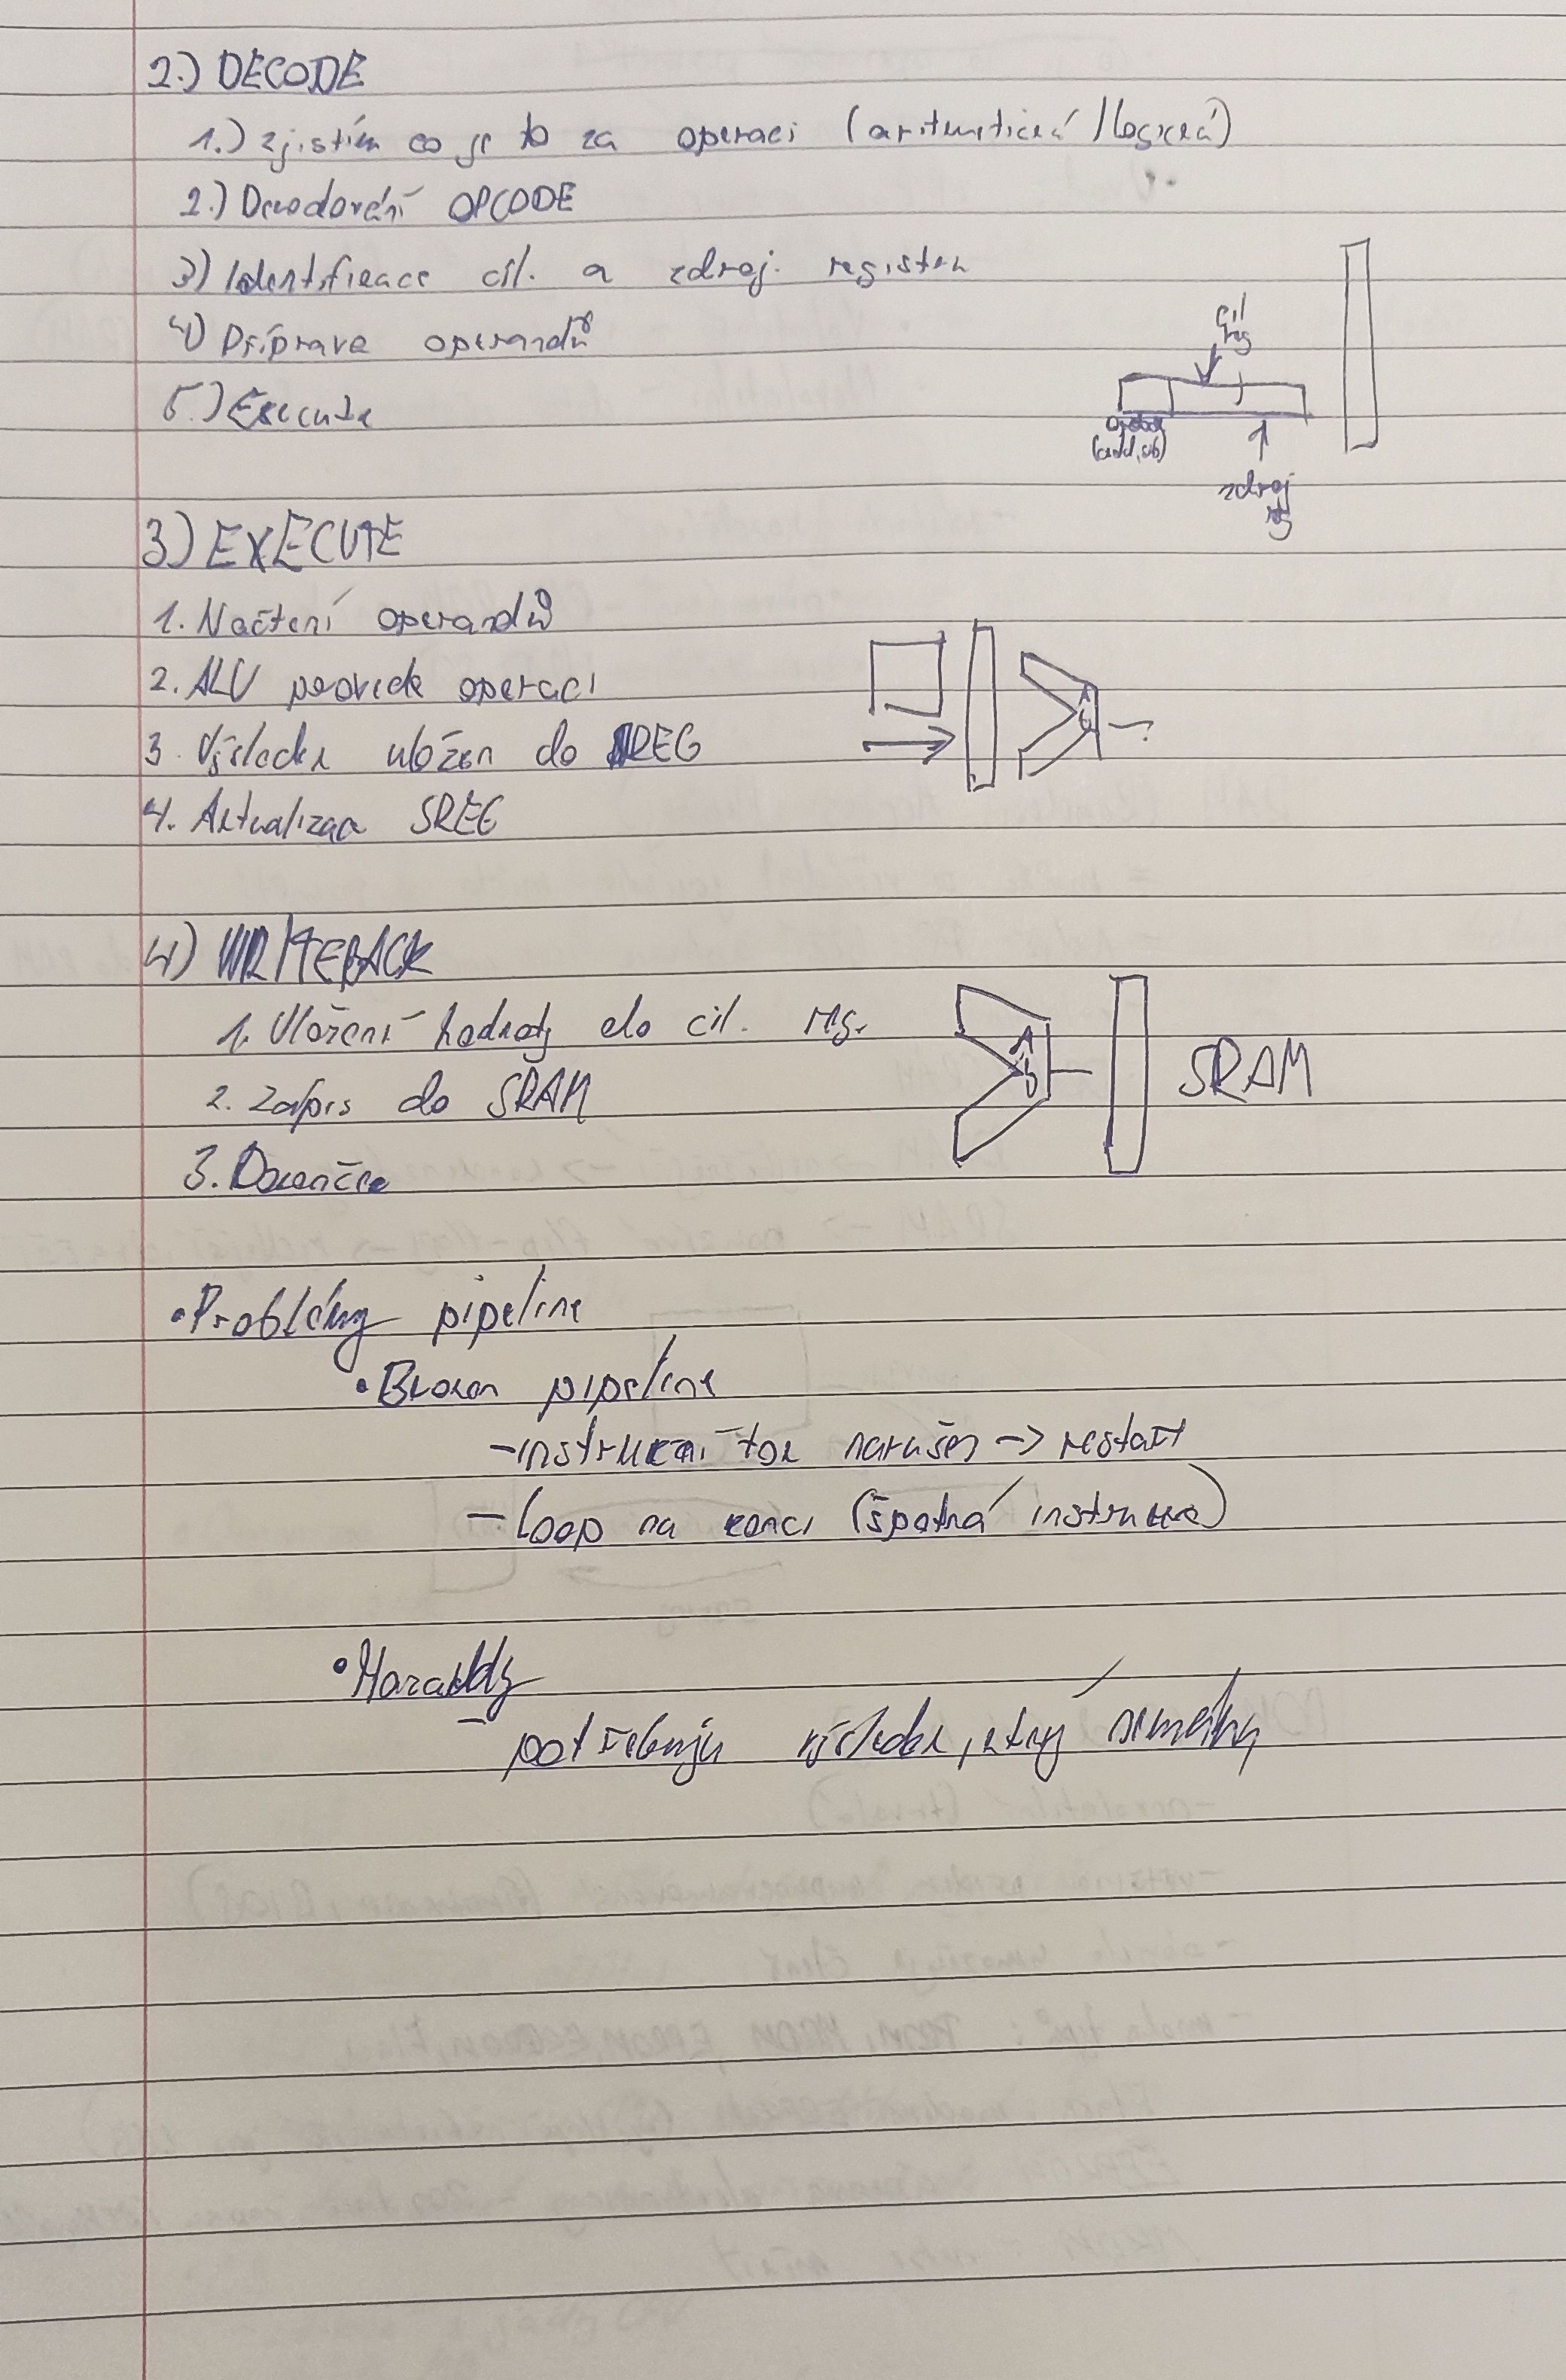 2.) DECODE
1.) zjistím co je to za operaci (aritmetická / logická)
2.) Dekódování OPCODE
3) Identifikace cíl. a zdroj. registru
4) Příprava operandů
5.) Execute
cíl
reg
(add, sub)
zdroj
reg
3) EXECUTE
1. Načtení operandů
2. ALU provede operaci
3. Výsledek uložen do REG
4. Aktualizace SREG
4) WRITEBACK
1. Uložení hodnoty do cíl. reg.
2. Zápis do SRAM
SRAM
3. Dokončení
• Problémy pipeline
• Broken pipeline
- instrukční tok narušen -> restart
- Loop na konci (špatná instrukce)
• Hazardy
- potřebuju výsledek, který nemáme